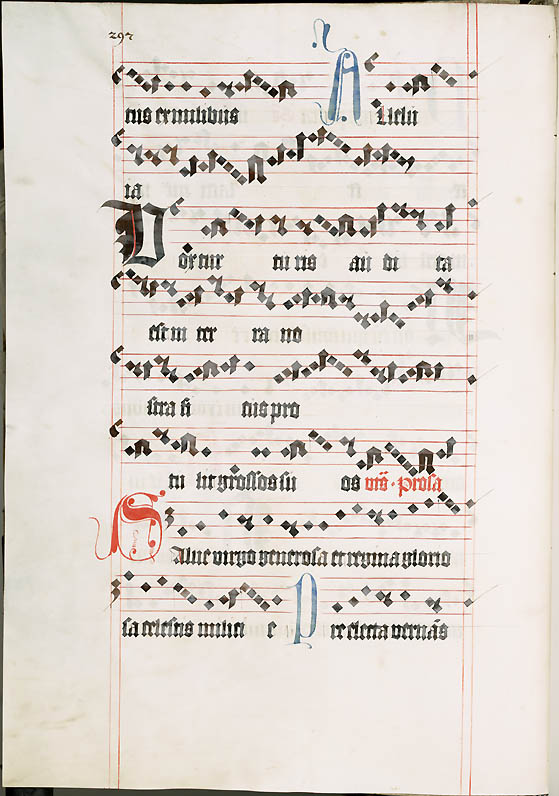 297
tus er milibus Alleluia
ia
Vox tur tu ris au di ta
est in ter ra no
stra fi cus pro
tu lit grossos su os vrs. Prosa
Salue virgo generosa et regina glorio
sa celestis milici e Pre electa vernās